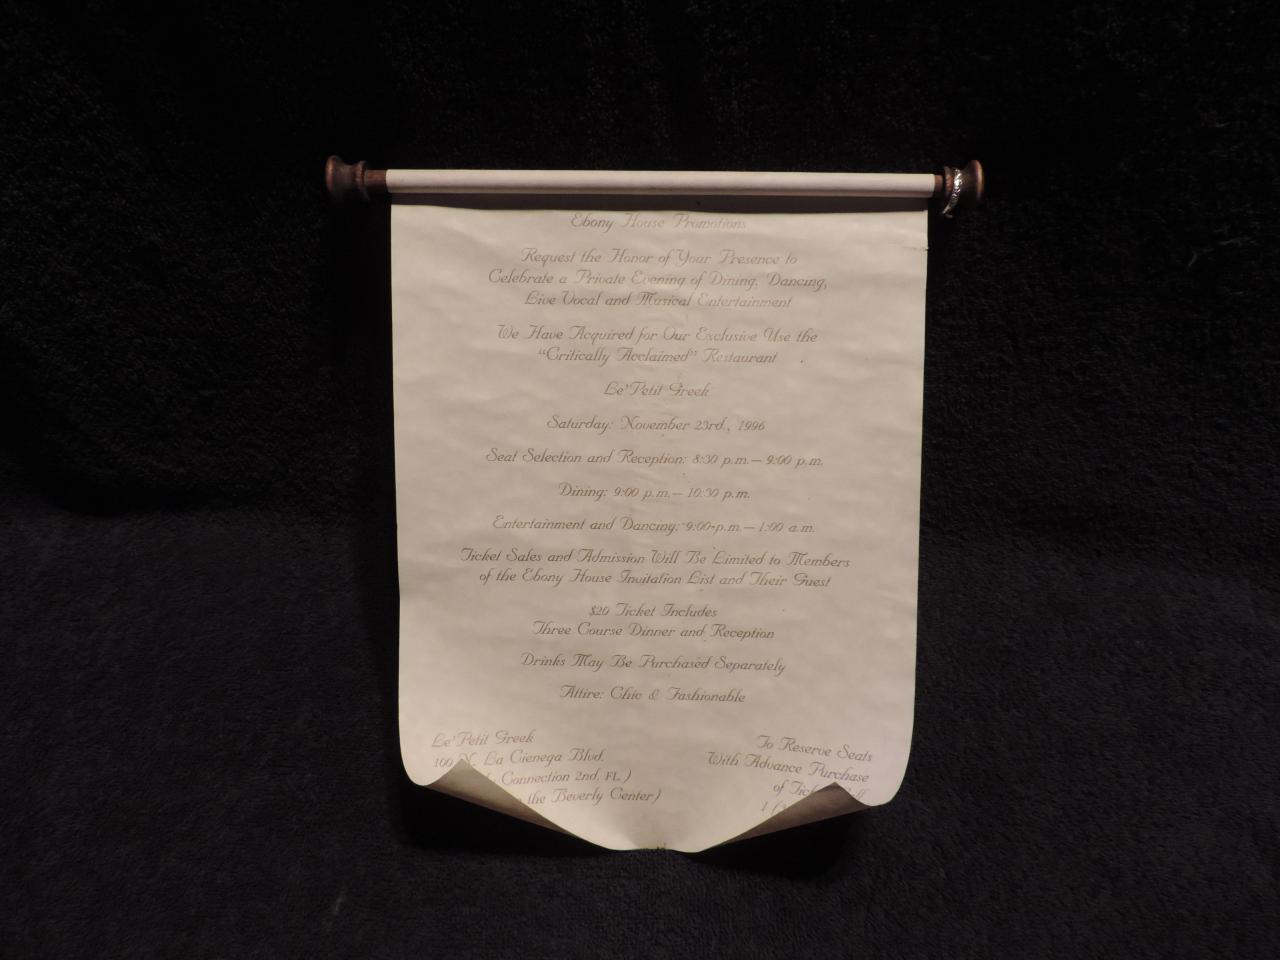 Ebony House Promotions
Request the Honor of Your Presence to
Celebrate a Private Evening of Dining, Dancing,
Live Vocal and Musical Entertainment
We Have Acquired for Our Exclusive Use the
"Critically Acclaimed" Restaurant
Le'Petit Greek
Saturday: November 23rd., 1996
Seat Selection and Reception: 8:30 p.m.— 9:00 p.m.
Dining: 9:00 p.m.— 10:30 p.m.
Entertainment and Dancing: 9:00 p.m.— 1:00 a.m.
Ticket Sales and Admission Will Be Limited to Members
of the Ebony House Invitation List and Their Guest
$20 Ticket Includes
Three Course Dinner and Reception
Drinks May Be Purchased Separately
Attire: Chic & Fashionable
Le'Petit Greek
100 N. La Cienega Blvd.
Connection 2nd. FL.)
the Beverly Center)
To Reserve Seats
With Advance Purchase
of
1 (